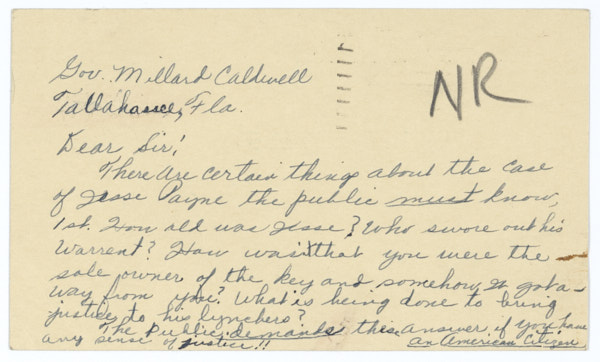 Gov. Millard Caldwell
Tallahassee, Fla.
NR
Dear Sir!
There are certain things about the case
of Jesse Payne the public must know,
1st. How old was Jesse? Who swore out his
Warrent? How was it that you were the
sole owner of the key and somehow it got a-
way from you? What is being done to bring
justice to his lynchers?
The Public demands this answer if you have
any sense of justice!!
An American Citizen